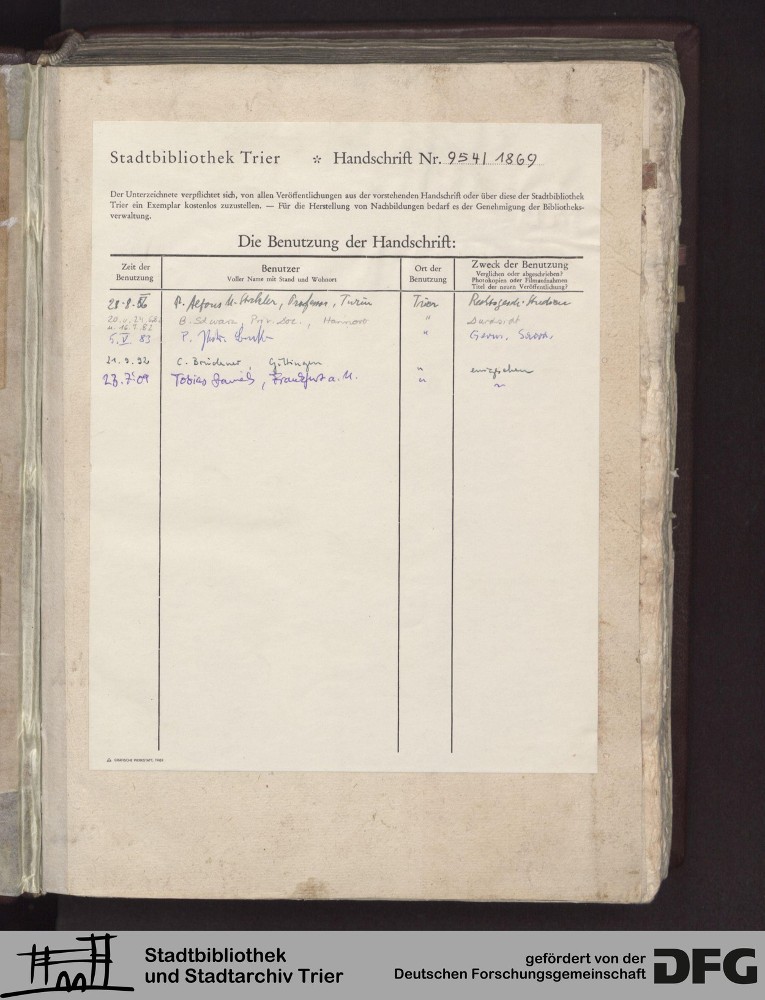 Stadtbibliothek Trier * Handschrift Nr. 954/1869
Der Unterzeichnete verpflichtet sich, von allen Veröffentlichungen aus der vorstehenden Handschrift oder über diese der Stadtbibliothek
Trier ein Exemplar kostenlos zuzustellen. — Für die Herstellung von Nachbildungen bedarf es der Genehmigung der Bibliotheks-
verwaltung.
Die Benutzung der Handschrift:
Zeit der
Benutzung
Benutzer
Voller Name mit Stand und Wohnort
Ort der
Benutzung
Zweck der Benutzung
Verglichen oder abgeschrieben?
Photokopien oder Filmaufnahmen
Titel der neuen Veröffentlichung?
P. Alfons M. Stickler, Professor, Turin Trier
Priv. Doz., Hannover " Durchsicht
5. V 83 P. "
21.9.92 C. Brückner Göttingen " eingesehen
23.7.09 Tobias Daniels, Frankfurt a. M. " "
GRAPHISCHE WERKSTATT, TRIER
Stadtbibliothek
und Stadtarchiv Trier
gefördert von der
Deutschen Forschungsgemeinschaft
DFG